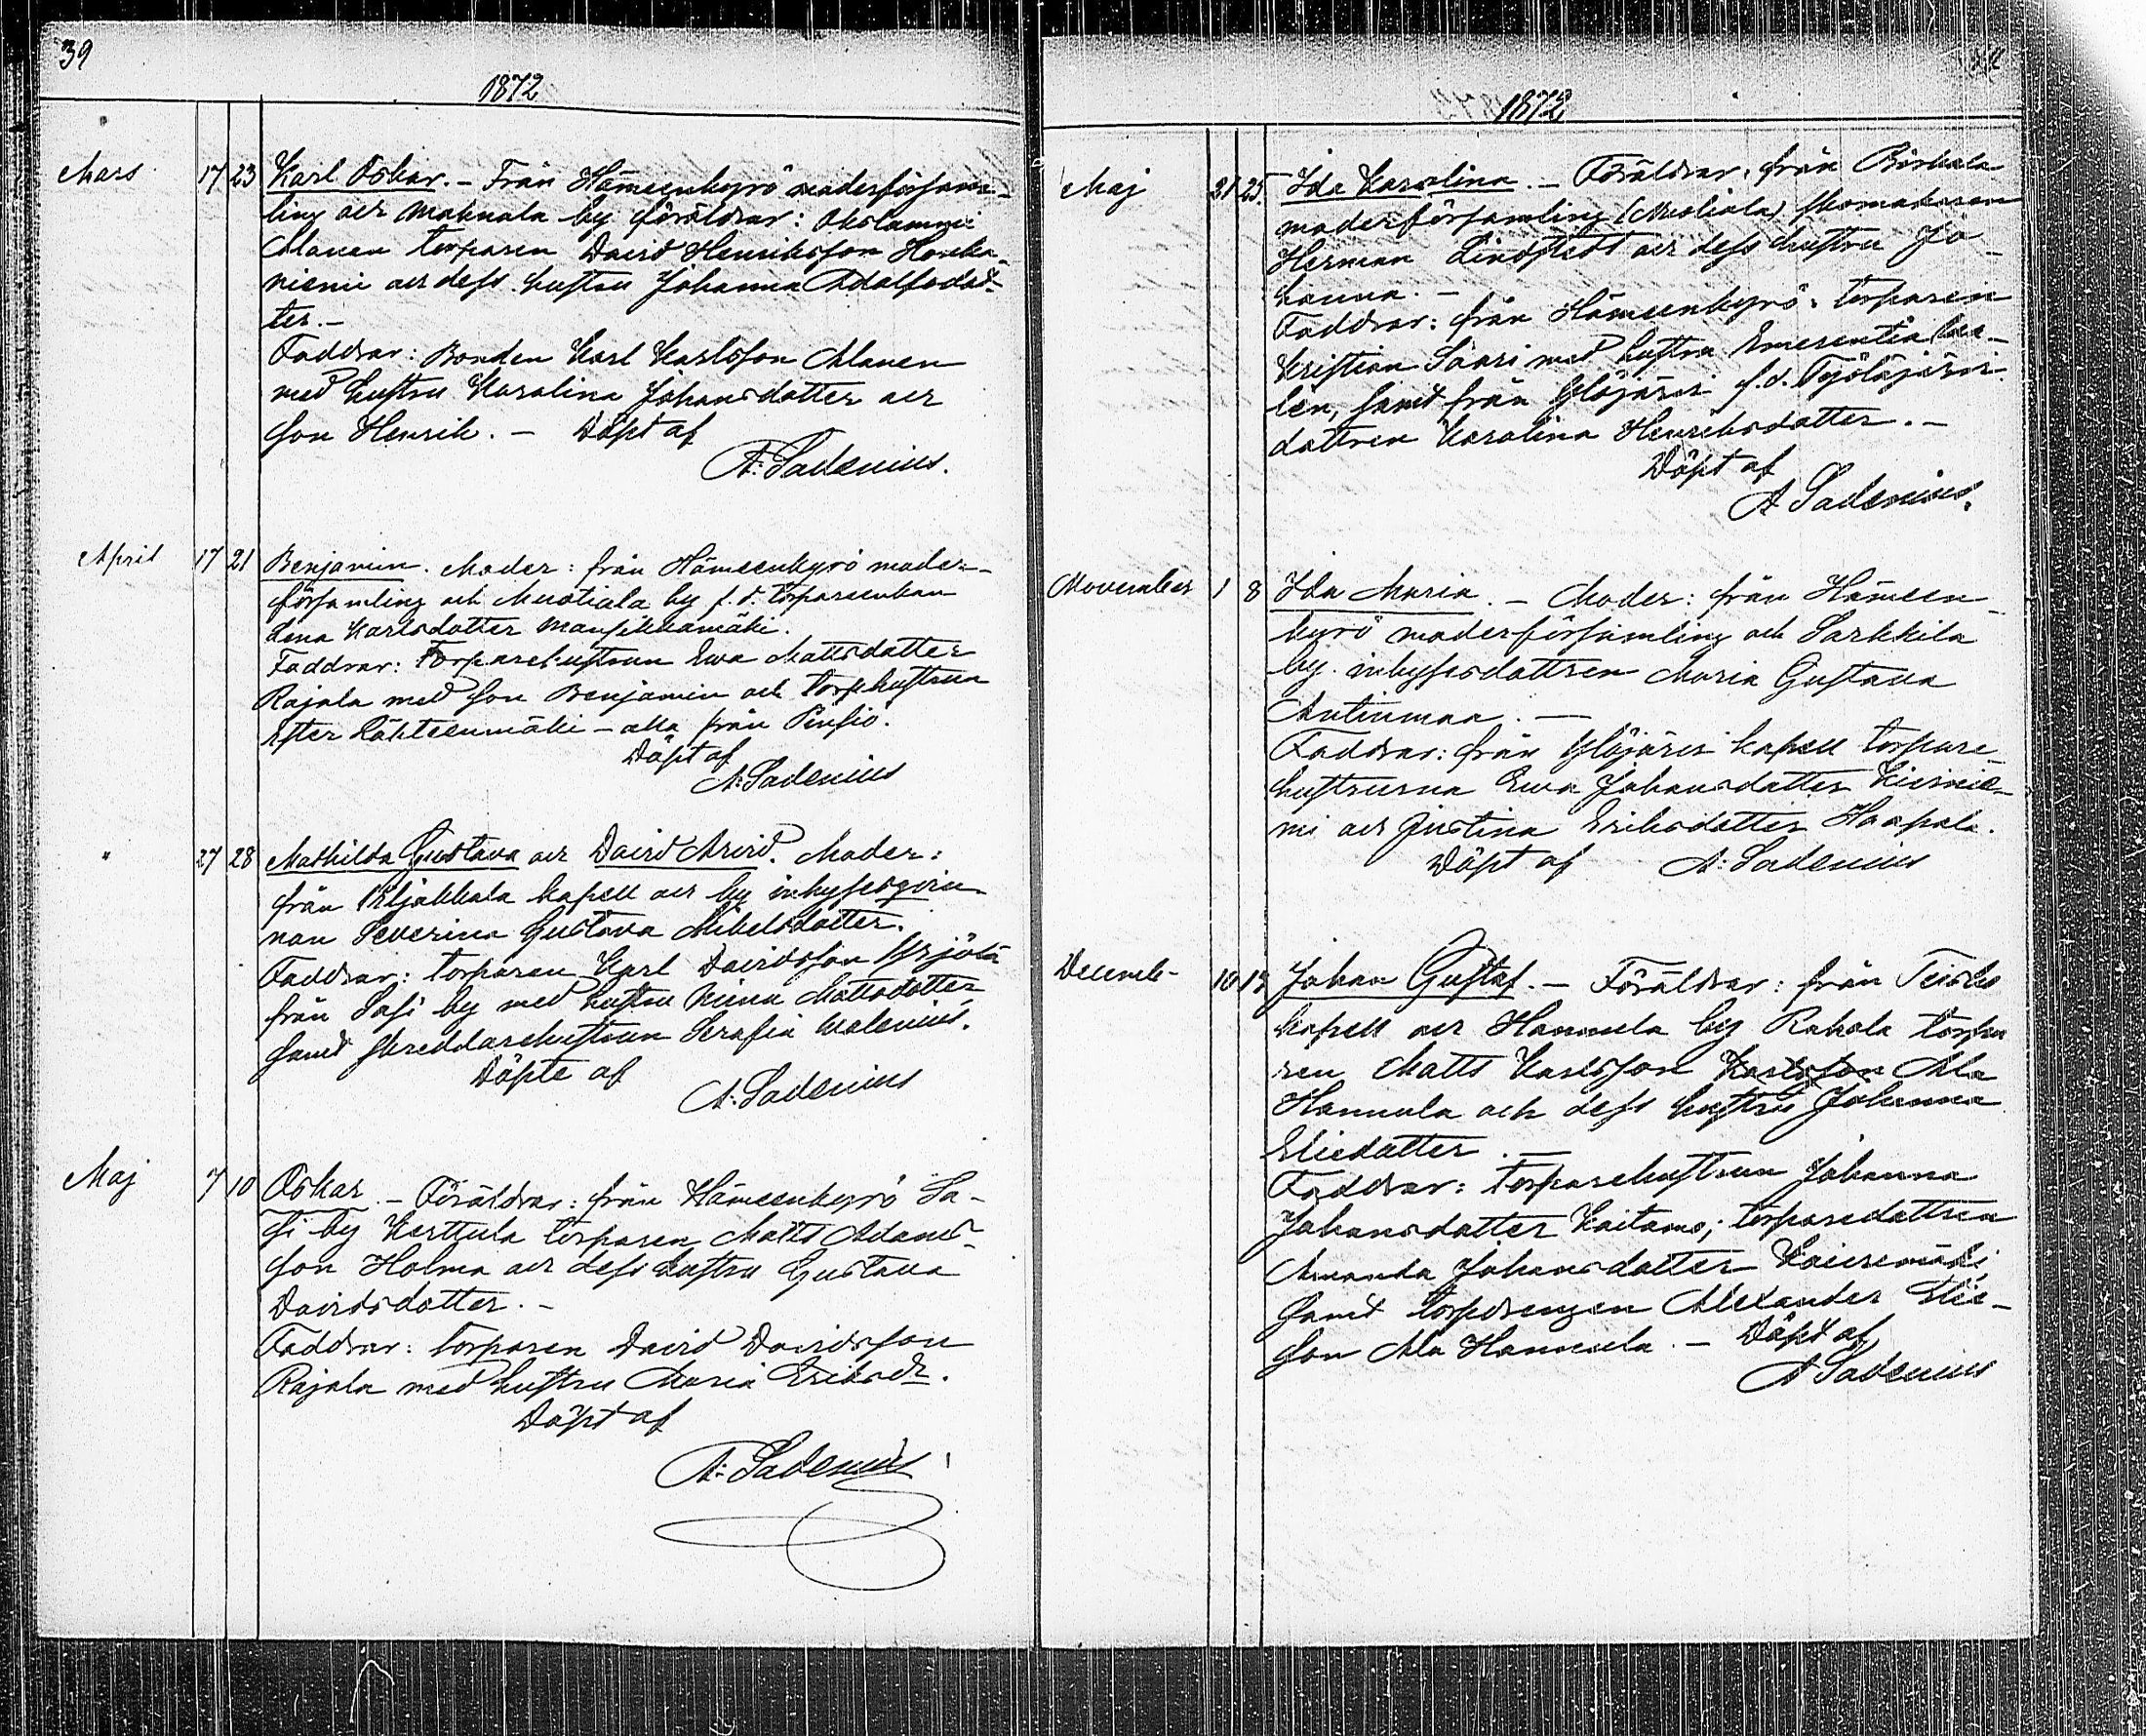 39
1872
Mars 17 23 Karl Oskar. – Från Hämeenkyrö moderförsam-
ling och Mahnala by föräldrar:
Alanen torparen David Henriksson Honka-
niemi och dess hustru Johanna Adolfsdot-
ter. –
Faddrar: Bonden Karl Karlsson Alanen
med hustru Karolina Johansdotter och
son Henrik. – Döpt af
A: Sadenius.
April 17 21 Benjamin. Moder: från Hämeenkyrö moder-
församling och by f. d. torpareenkan
Lena Karlsdotter Mansikkamäki.
Faddrar: Torparehustrun Ewa Mattsdotter
Rajala med son Benjamin och torphustrun
Ester Lähteenmäki – alla från Pinsiö.
Döpt af
A: Sadenius
" 27 28 Mathilda Gustava och David Arvid. Moder:
från Wiljakkala kapell och by inhysesqvin-
nan Severina Gustava Mikelsdotter.
Faddrar: torparen Karl Davidsson Yrjölä
från Sasi by med hustru Mattsdotter
samt skreddarehustrun Serafia Walenius.
Döpte af
A: Sadenius
Maj 7 10 Oskar. – Föräldrar: från Hämeenkyrö Sa-
si by Kerttula torparen Matts Adams-
son Holma och dess hustru Gustava
Davidsdotter. –
Faddrar: torparen David Davidsson
Rajala med hustru Maria Eriksdr.
Döpt af
A: Sadenius
1872
Maj 21 25. Ida Karolina. – Föräldrar: från Birkala
moderförsamling skomakaren
Herman Lindstedt och dess hustru Jo-
hanna. –
Faddrar: från Hämeenkyrö: torparen
Kristian Saari med hustru Emerentia
samt från Ylöjärvi f. d.
dottren Karolina Henriksdotter. –
Döpt af
A Sadenius.
November 1 8 Ida Maria. – Moder: från Hämeen-
kyrö moderförsamling och Sarkkila
by inhysesdottren Maria Gustava
Antinmaa. –
Faddrar: från Ylöjärvi kapell torpare-
hustrurna Ewa Johansdotter
och Justina Eriksdotter Haapala.
Döpt af A: Sadenius
Decemb- 10 13 Johan Gustaf. – Föräldrar: från Teisko
kapell och Hannula by Rahola torpa
ren Matts Karlsson Karlsson Ala
Hannula och dess hustru Johanna
Eliedotter. –
Faddrar: torparehustrun Johanna
Johansdotter Kaitamo; torparedottren
Amanda Johansdotter
samt torpdrengen Alexander Elie-
son Ala Hannula. – Döpt af
A Sadenius